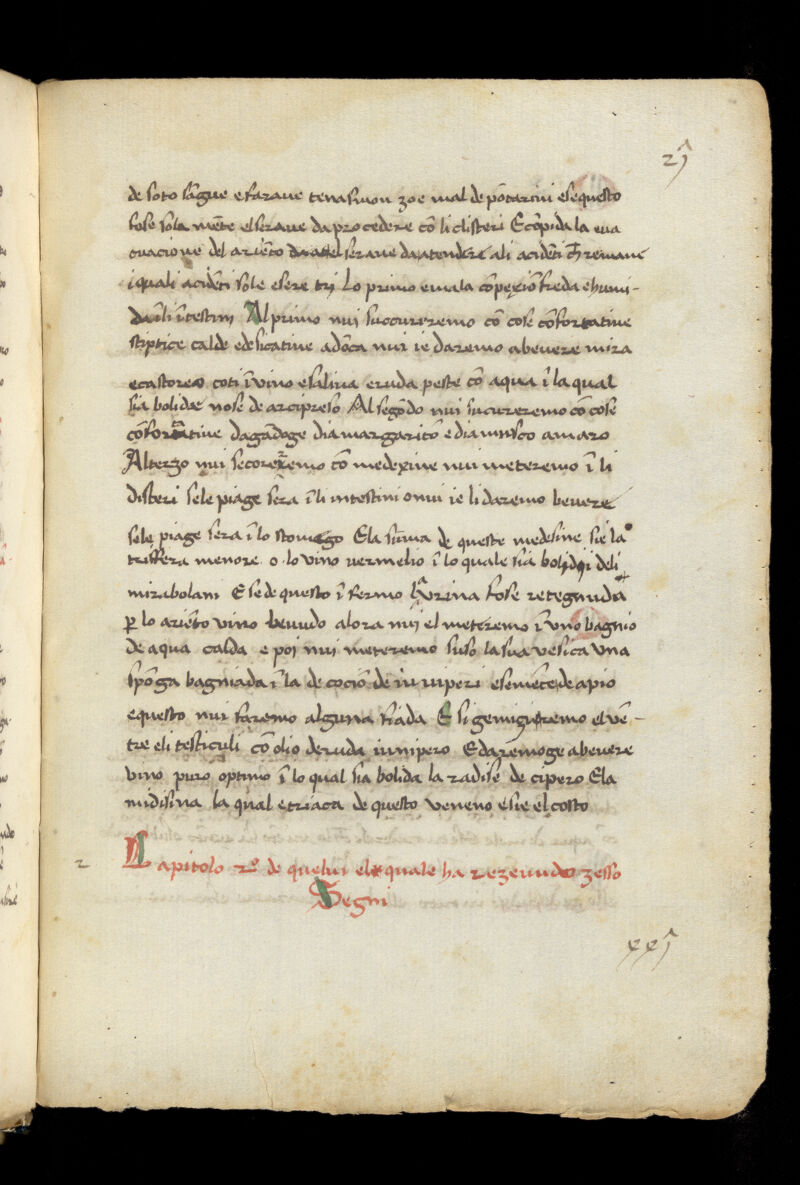 21
de soto sãgue e farave tenasmon zoe mal de põtarini e se questo
fose sola mẽte el serave da procedere cõ li clisteri E cõpida la eua
cuacione del ariẽto serave da atendere ali acidẽti che remane
i quali acidẽti sole esere trj Lo primo e mala cõpexiõ freda e humi-
da ĩ li ĩtestini Al primo nui succurreremo cõ cose cõfortative
stiptice calde e desicative adõca nui ie daremo a bevere mira
e castoreo coti ĩ vino e salina e ruda peste cõ aqua ĩ la qual
sia bolide nose de arcipreso Al segõdo nui sucureremo cõ cose
cõfortative dagãdoge diamargaritõ e diamusco amaro
Al terzo nui secoreremo cõ medexine nui meteremo ĩ li
clisteri se le piage sera ĩ li intestini o nui ie li daremo bevere
se le piage sera ĩ lo stomego E la sũma de queste medesine sie la
triffera menore o lo vino vermelio ĩ lo quale sia bolidi deli
mirabolani E se de questo ĩfermo l'urina fose retegnuda
p lo ariẽto vivo bevudo alora nui el meteremo ĩ uno bagnio
de aqua calda e poi nui meteremo suso la sua vesica una
spõga bagniada ĩ la decociõ de iuniperi e semẽce de apio
e questo nui faremo alguna fiada E si gemigieremo el vẽ-
tre e li testiculi cõ olio de ruda iunipero E daremoge a bevere
vino puro optimo ĩ lo qual sia bolida la radise de cipero E la
midisina la qual e triaca de questo veneno e sie el costo
2
Capitolo 2º de quelui el quale ha rezevudo zesso
Segni
xxj